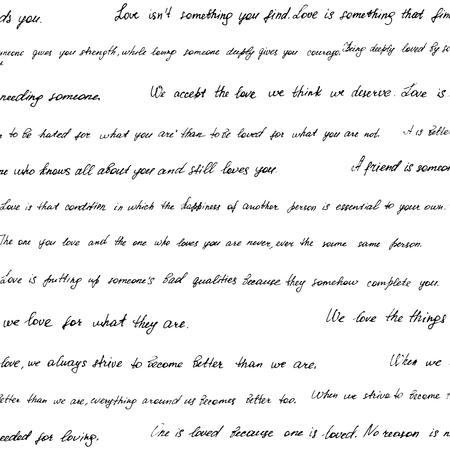 ds you. Love isn't something you find. Love is something that fin
meone gives you strength, while loving someone deeply gives you courage. Being deeply loved by so
needing someone. We accept the love we think we deserve. Love is
r to be hated for what you are than to be loved for what you are not. It is bette
ne who knows all about you and still loves you. A friend is someo
Love is that condition in which the happiness of another person is essential to your own.
The one you love and the one who loves you are never, ever the same same person.
Love is putting up someone's bad qualities because they somehow complete you.
we love for what they are. We love the things
love, we always strive to become better than we are. When we
better than we are, everything around us becomes better too. When we strive to become
eeded for loving. One is loved because one is loved. No reason is n